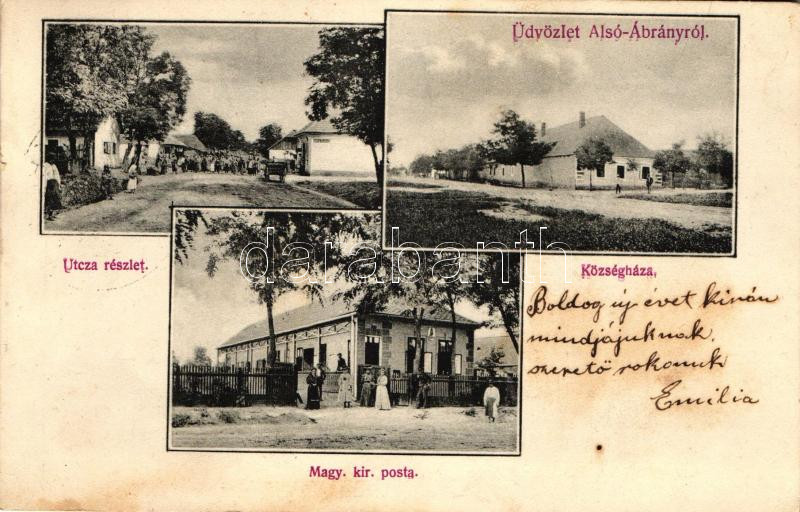 Üdvözlet Alsó-Ábrányról.
Utcza részlet.
darabanth
Községháza.
Boldog új évet kíván
mindjájuknak
szerető rokonuk
Emilia
Magy. kir. posta.